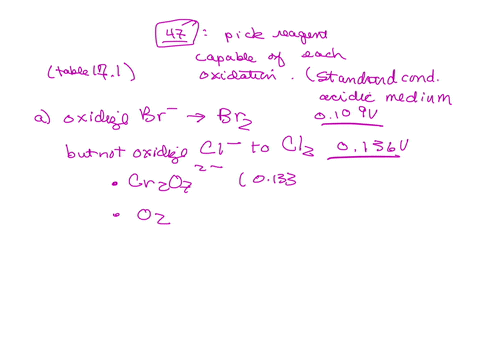 47 : pick reagent
capable of each
(table 17.1) oxidation. (standard cond.
acidic medium
a) oxidize Br⁻ → Br₂ 0.109V
but not oxidize Cl⁻ to Cl₂ 0.136V
• Cr₂O₇²⁻ (0.133
• O₂